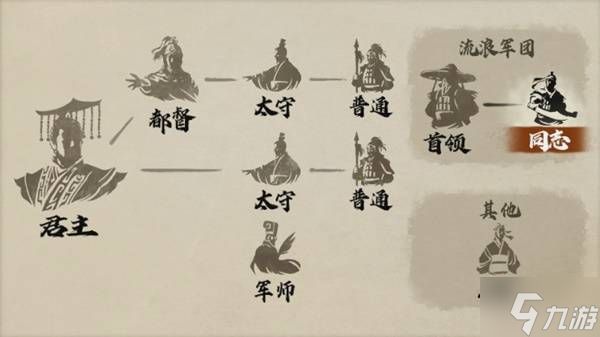 流浪军团
都督
太守
普通
首领
同志
君主
太守
普通
其他
军师
九游